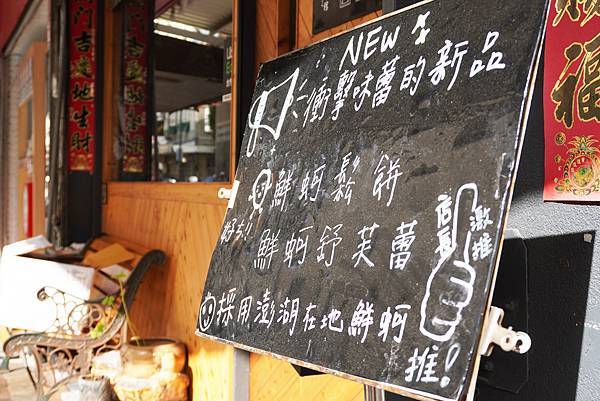 NEW
衝擊味蕾的新品
鮮蚵鬆餅
好ㄘ!!
鮮蚵舒芙蕾
採用澎湖在地鮮蚵
店長
激推
推!
福